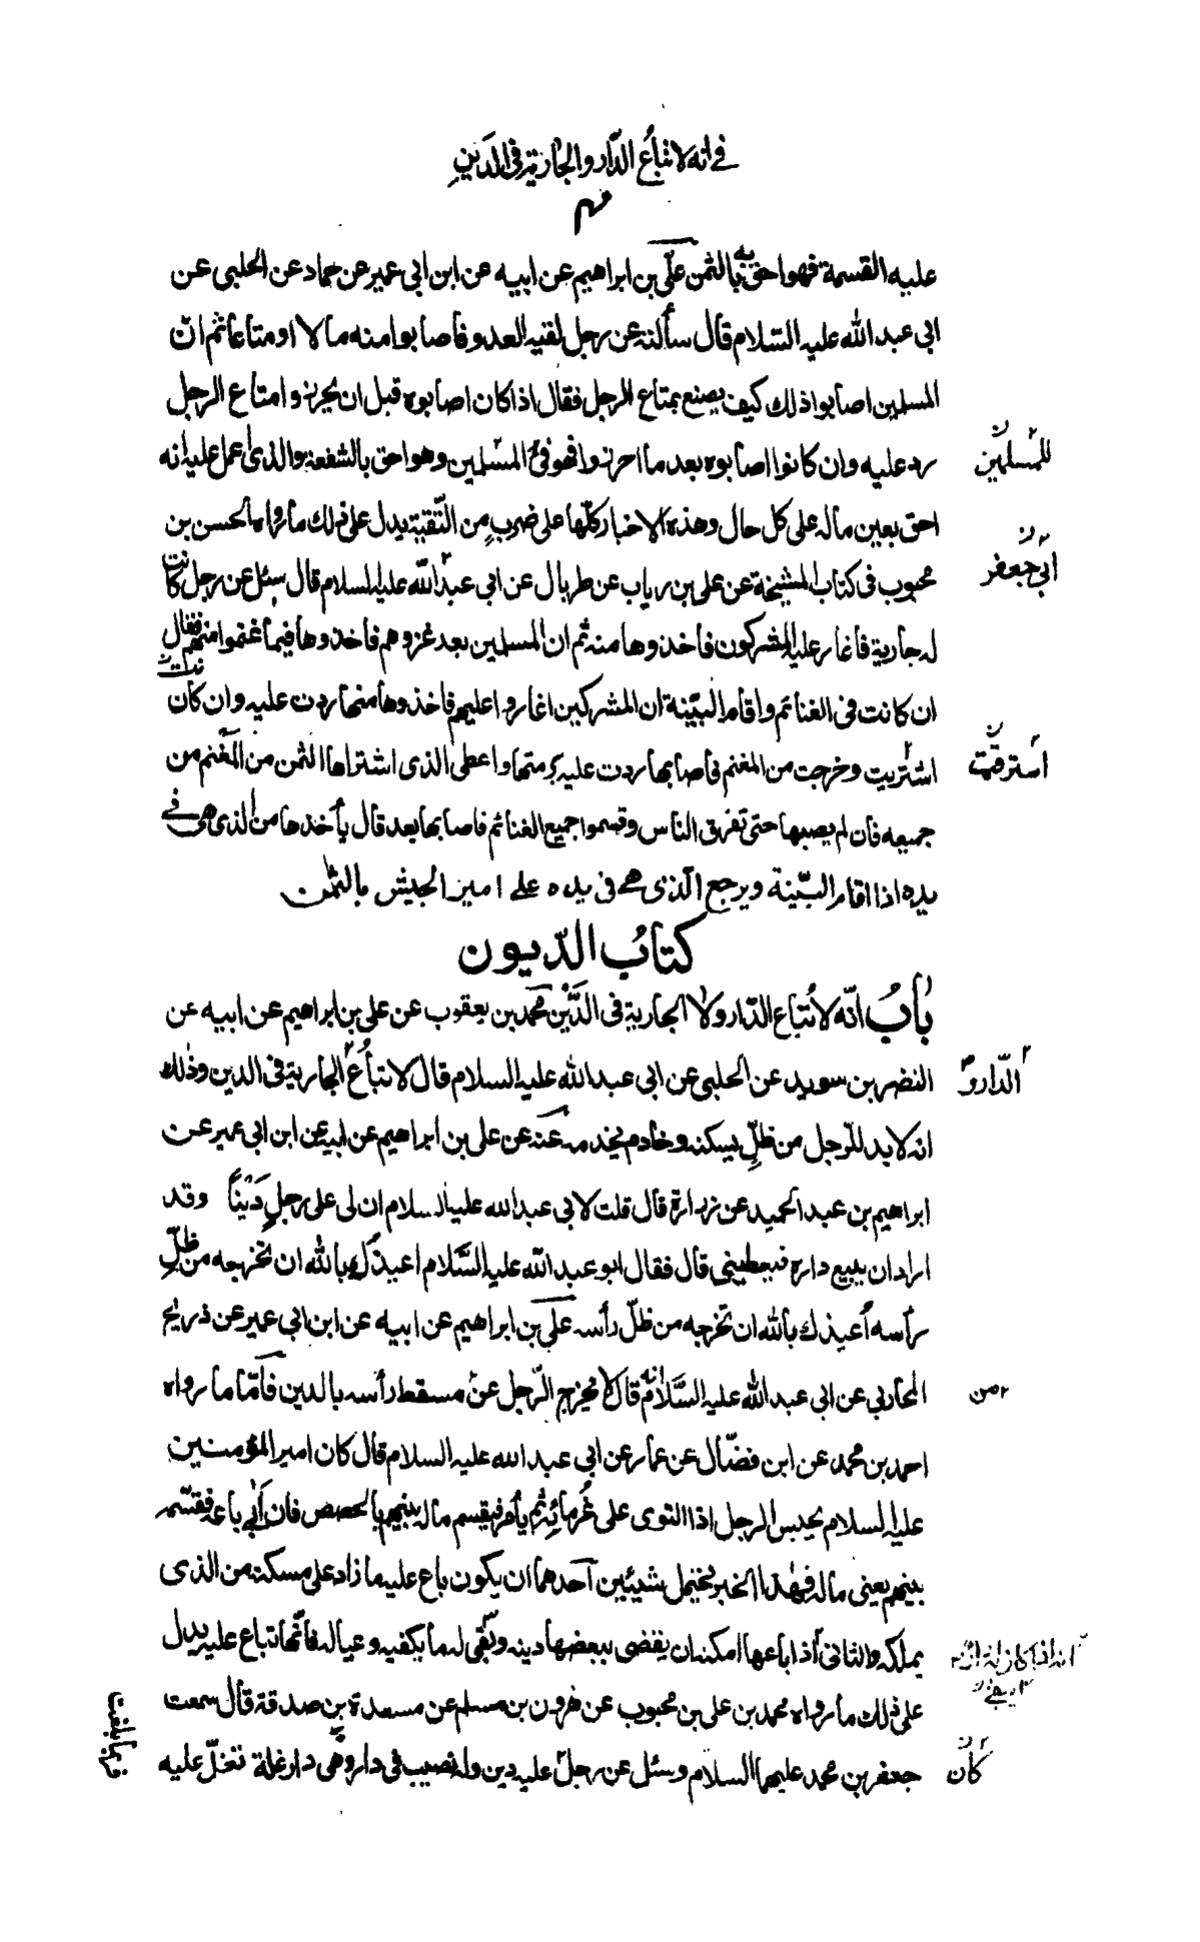 في انه لا تباع الدار والجارية في الدين
عليه القسمة فهو احق به بالثمن علي بن ابراهيم عن ابيه عن ابن ابي عمير عن حماد عن الحلبي عن
ابي عبد الله عليه السّلام قال سألته عن رجل لقيه العدو فاصابوا منه مالا او متاعا ثم انّ
المسلمين اصابوا ذلك كيف يصنع بمتاع الرجل فقال اذا كان اصابوه قبل ان يحرزوا متاع الرجل
ردّ عليه وان كانوا اصابوه بعد ما احرزوا فهو فئ المسلمين وهو احق بالشفعة والذي اعمل عليه انه
للمسلمين
احق بعين ماله على كل حال وهذه الاخبار كلّها على ضرب من التّقية يدل على ذلك ما رواه الحسن بن
محبوب في كتاب المشيخة عن علي بن رياب عن طربال عن ابي عبد الله عليه السلام قال سئل عن رجل كانت
ابي جعفر
له جارية فاغار عليه المشركون فاخذوها منه ثم ان المسلمين بعد غزوهم فاخذوها فيما غنموا منهم فقال
ان كانت في الغنائم واقام البيّنة ان المشركين اغاروا عليهم فاخذوها منه ردت عليه وان كان
اشتريت وخرجت من المغنم فاصابها ردت عليه برمتها واعطى الذي اشتراها الثمن من المغنم من
جميعه فان لم يصبها حتى تفرق الناس وقسموا جميع الغنائم فاصابها بعد قال يأخذها من الذي هي في
يده اذا اقام البيّنة ويرجع الّذي هي في يده على امير الجيش بالثمن
كتاب الدّيون
باب انّه لا تباع الدّار ولا الجارية في الدَّيْن محمد بن يعقوب عن علي بن ابراهيم عن ابيه عن
النضر بن سويد عن الحلبي عن ابي عبد الله عليه السلام قال لا تباع الجارية في الدين وذلك
الدّار و
انه لا بد للرّجل من ظلّ يسكنه وخادم يخدمه عنه عن علي بن ابراهيم عن ابيه عن ابن ابي عمير عن
ابراهيم بن عبد الحميد عن زرارة قال قلت لابي عبد الله عليه السلام ان لي على رجل دَيْناً وقد
اراد ان يبيع داره فيعطيني قال فقال ابو عبد الله عليه السَّلام اعيذك بالله ان تخرجه من ظلّ
رأسه اُعيذك بالله ان تخرجه من ظلّ رأسه علي بن ابراهيم عن ابيه عن ابن ابي عمير عن ذريح
المحاربي عن ابي عبد الله عليه السَّلام انه قال لا يخرج الرّجل عن مسقط رأسه بالدين فأمّا ما رواه
من
احمد بن محمد عن ابن فضّال عن عمار عن ابي عبد الله عليه السلام قال كان امير المؤمنين
عليه السلام يحبس الرجل اذا التوى على غُرمائه ثم يأمر فيقسم ماله بينهم بالحصص فان أبى باعه فقسّمه
بينهم يعني ماله فهذا الخبر يحتمل شيئين احدهما ان يكون باع عليه ما زاد على مسكنه من الذي
يملكه والثاني اذا باعها امكنه ان يقضي ببعضها دينه وتبقى له ما يكفيه وعياله فانّها تباع عليه يدل
على ذلك ما رواه محمد بن علي بن محبوب عن هرون بن مسلم عن مسعدة بن صدقة قال سمعت
جعفر بن محمد عليهما السلام وسئل عن رجل عليه دين وله نصيب في دار وهي دار غلة تغلّ عليه
كان
فربما بلغت